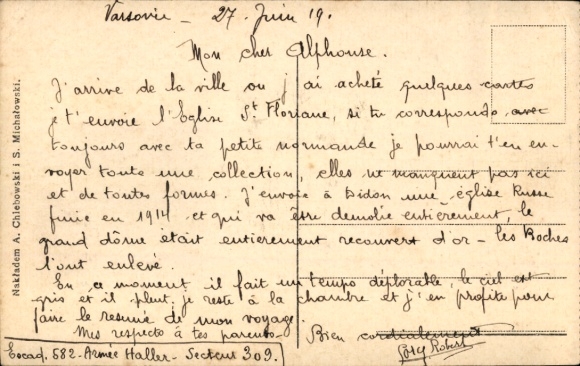 Varsovie - 27. Juin 19.
Mon cher Alphonse.
J'arrive de la ville ou j'ai acheté quelques cartes
je t'envoie l'Eglise St Floriane, si tu corresponds avec
toujours avec ta petite normande je pourrai t'en en-
voyer toute une collection, elles ne manquent pas ici
et de toutes formes. J'envoie à Didon une église Russe
finie en 1914 et qui va être demolie entièrement, le
grand dôme était entierement recouvert d'or - les Boches
l'ont enlevé.
En ce moment il fait un temps déplorable, le ciel est
gris et il pleut je reste à la chambre et j'en profite pour
faire le resumé de mon voyage.
Mes respects à tes parents.
Bien cordialement
Robert
Escad. 582 - Armée Haller - Secteur 309.
Nakładem A. Chlebowski i S. Michałowski.